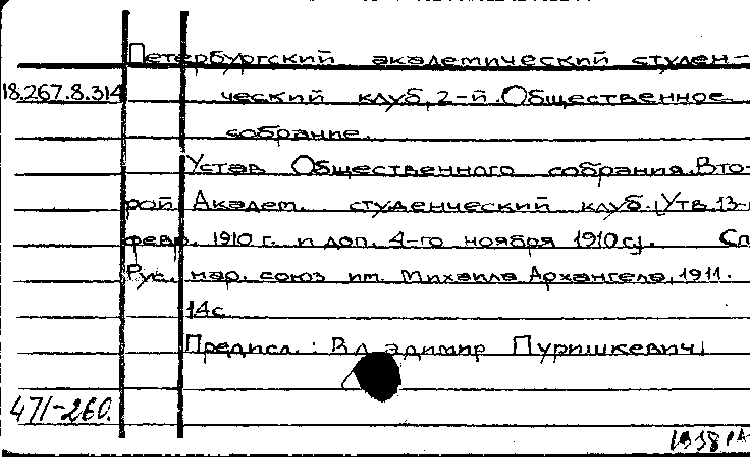 Петербургский академический студен-
18.267.8.314 ческий клуб, 2-й. Общественное
собрание.
Устав Общественного собрания. Вто-
рой Академ. студенческий клуб. [Утв. 13-
февр. 1910 г. и доп. 4-го ноября 1910 г.]. Сп
Рус. нар. союз им. Михаила Архангела, 1911.
14с
Предисл.: Владимир Пуришкевич.
471-260.